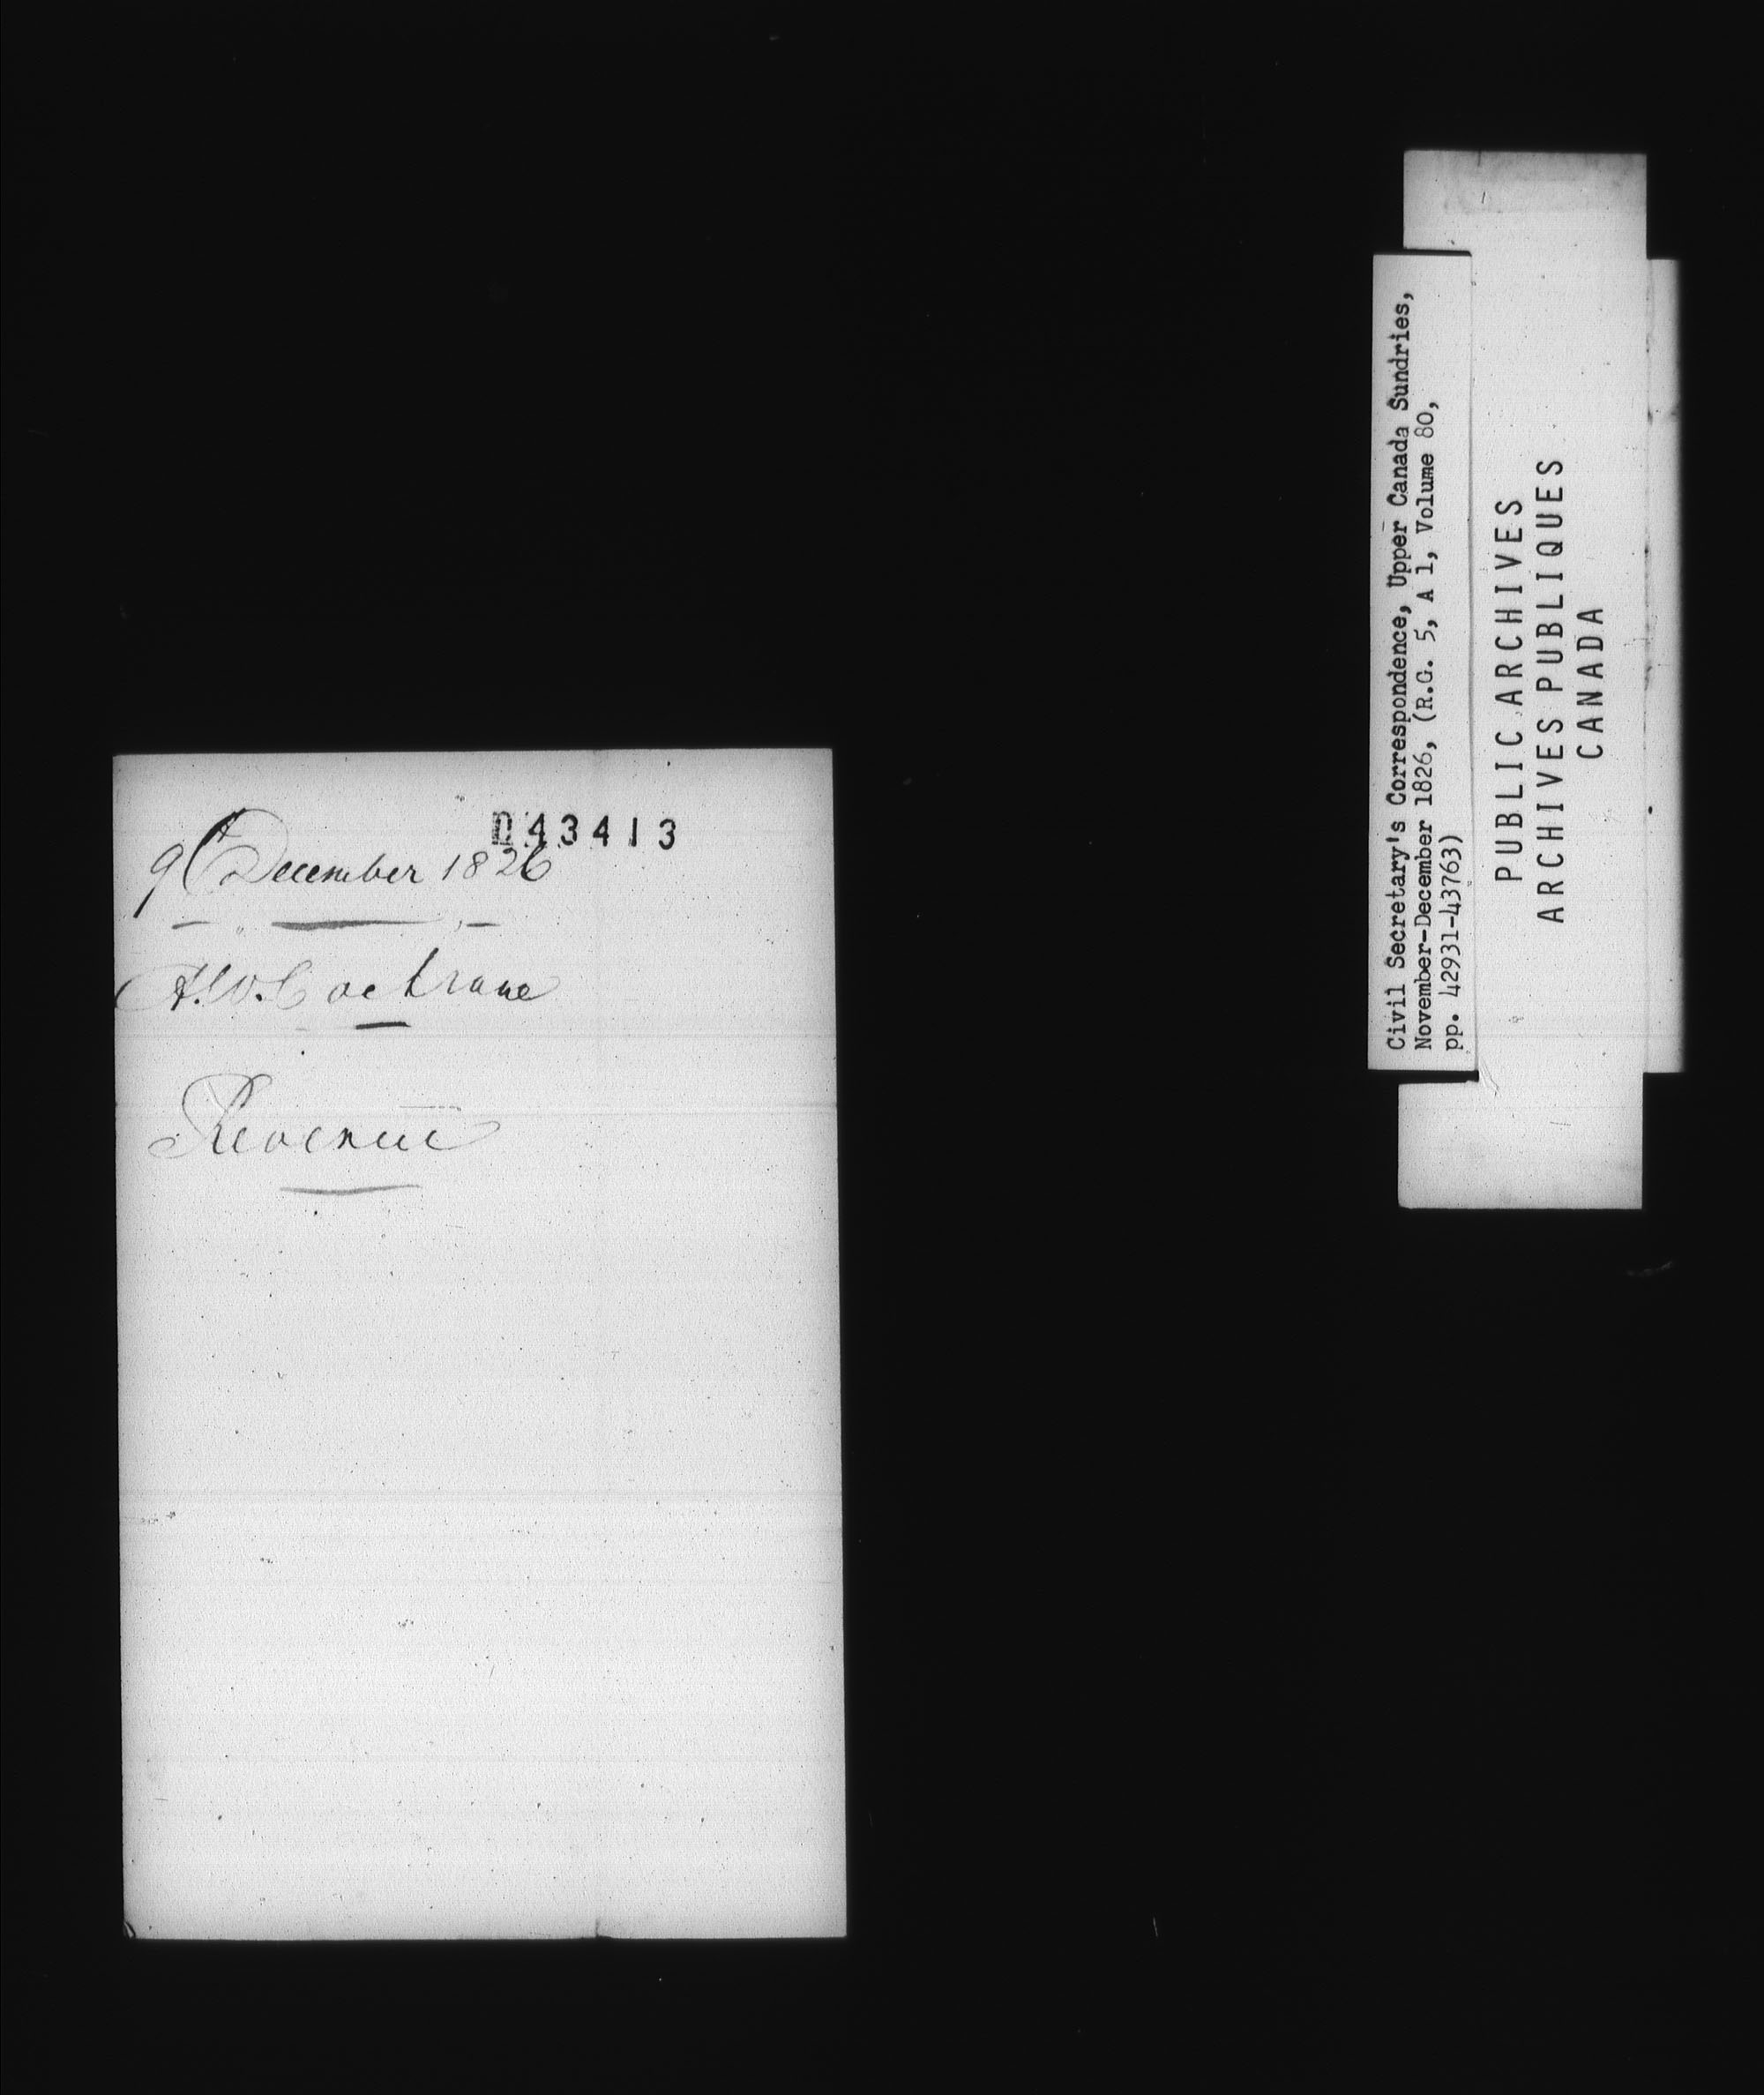 043413
9 December 1826
A.W. Cochrane
Revenue
Civil Secretary's Correspondence, Upper Canada Sundries,
November-December 1826, (R.G. 5, A 1, Volume 80,
pp. 42931-43763)
PUBLIC ARCHIVES
ARCHIVES PUBLIQUES
CANADA